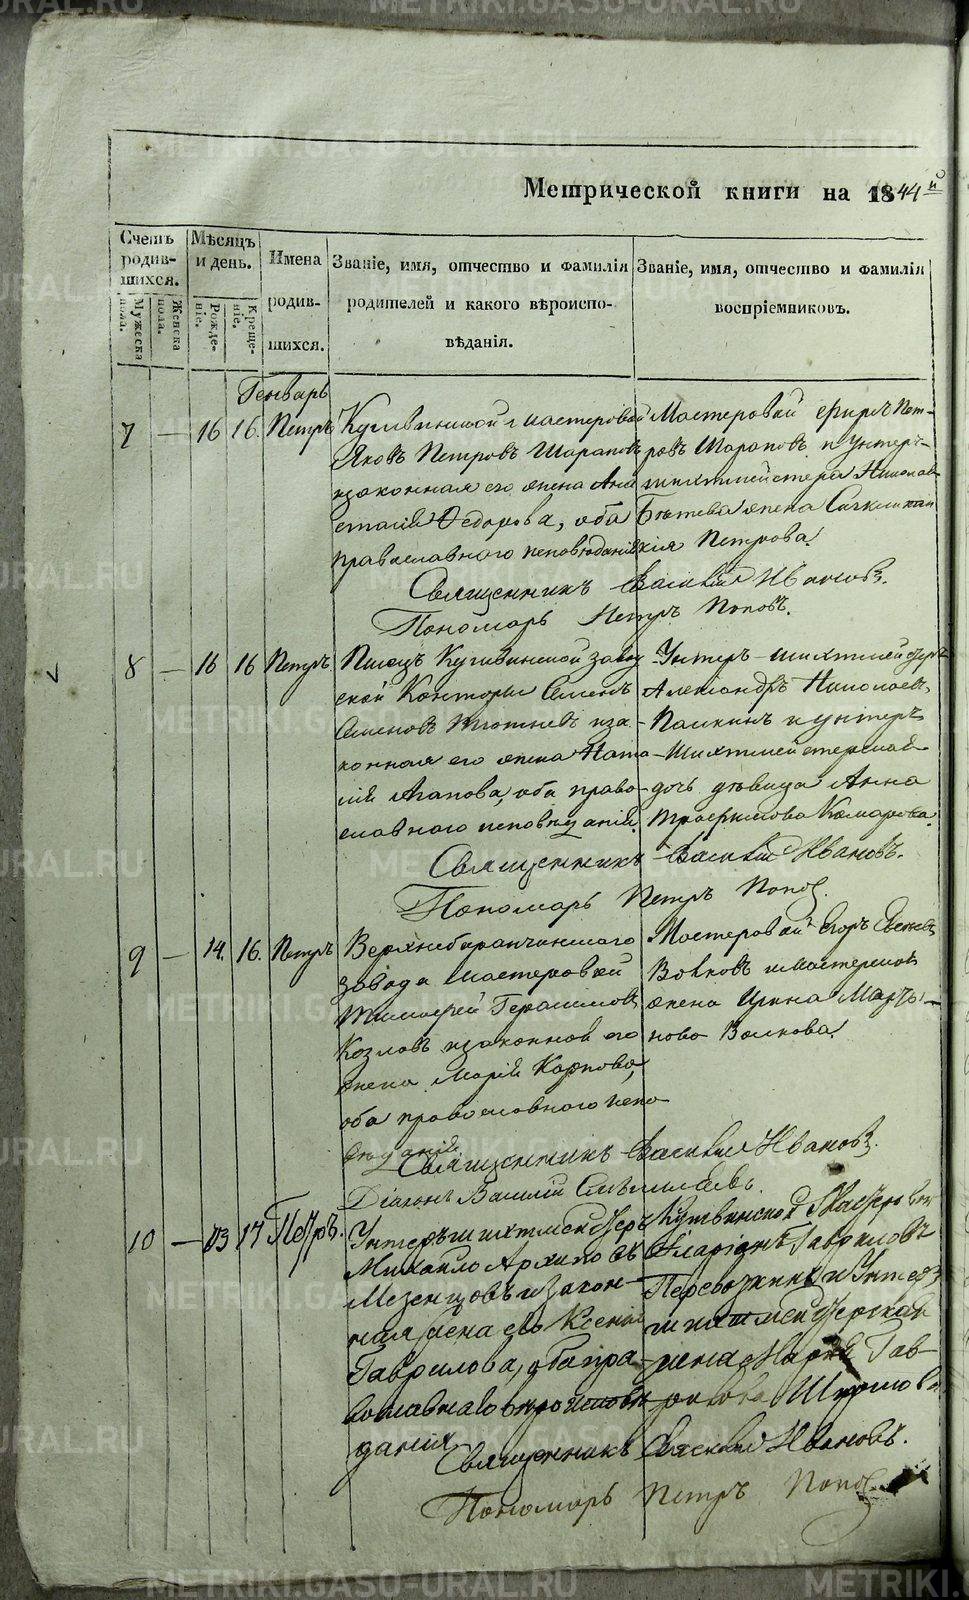 Метрической книги на 1844й
Счетъ родившихся.
Мужеска пола.
Женска пола.
Мѣсяцъ и день.
Рожденіе.
Крещеніе.
Имена родившихся.
Званіе, имя, отчество и фамилія родителей и какого вѣроисповѣданія.
Званіе, имя, отчество и фамилія воспріемниковъ.
Генварь
7 — 16 16. Петръ
мастеровой
Яковъ Петровъ Шараповъ
изаконная его жена
Федорова, оба
православнаго исповѣданія
Мастеровой Пет-
ровъ Шараповъ и унтеръ-
шихтмейстера
жена
Петрова.
Священникъ Василій Ивановъ.
Пономарь Петръ Поповъ.
8 — 16 16 Петръ
Писецъ Кушвинской завод
ской Конторы Семенъ
Семеновъ иза-
конная его жена Ната-
лія Агапова, оба право-
славнаго исповѣданія.
Унтеръ-шихтмейстеръ
Александръ Николаевъ
и унтеръ
-шихтмейстерская
дочь дѣвица Анна
Трофимова Комарова.
Священникъ Василій Ивановъ.
Пономарь Петръ Попов.
9 — 14. 16. Петръ
Верхнебаранчинскаго
завода мастеровой
Тимофей Герасимовъ
Козловъ изаконная его
жена Марія Карпова,
оба православнаго испо
вѣданія
Мастеровой Егоръ
Волковъ имастерская
жена Ирина Марты-
нова Волкова.
Священникъ Василій Ивановъ.
Діаконъ Василій
10 — 13 17 Петръ.
Унтеръшихтмейстеръ
Михаило Архиповъ
Мезенцовъ изакон-
ная жена его Ксенія
Гаврилова, оба пра-
вославнаго
данія
Кушвинской Мастеровой
Иларіонъ Гавриловъ
и Унтеръ
шихтмейстерская
жена Марья Гав-
рилова
Священникъ Василій Ивановъ.
Пономарь Петръ Попов
METRIKI.GASO-URAL.RU